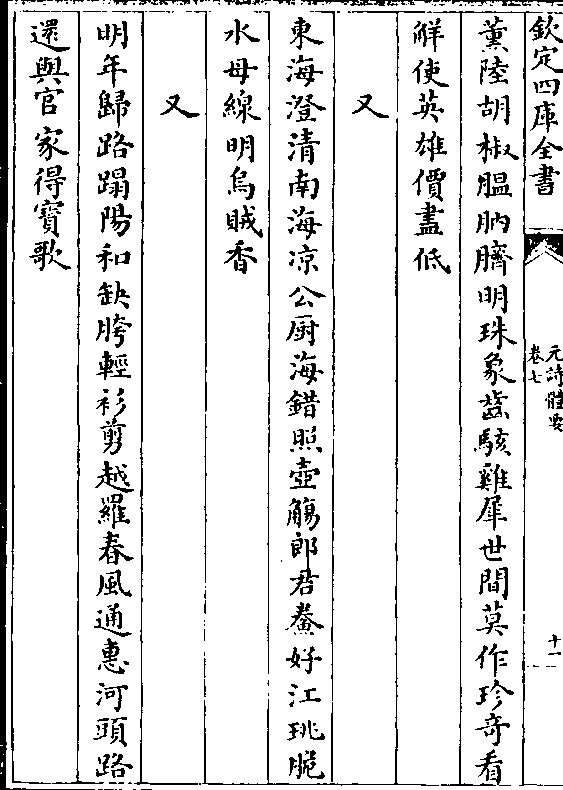 欽定四庫全書
元詩體要
卷七
十一
薫陸胡椒膃肭臍明珠象齒駭雞犀世間莫作珍奇看
解使英雄價盡低
又
東海澄清南海凉公厨海錯照壺觴郎君鮝好江珧脆
水母線明烏賊香
又
明年歸路蹋陽和缺胯輕衫剪越羅春風通惠河頭路
還與官家得寳歌